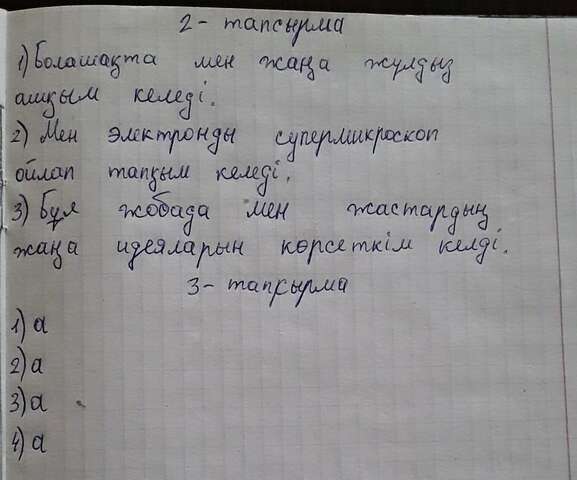 2 - тапсырма
1) Болашақта мен жаңа жұлдыз
ашқым келеді.
2) Мен электронды супермикроскоп
ойлап тапқым келеді.
3) Бұл жобада мен жастардың
жаңа идеяларын көрсеткім келді.
3 - тапсырма
1) а
2) а
3) а
4) а